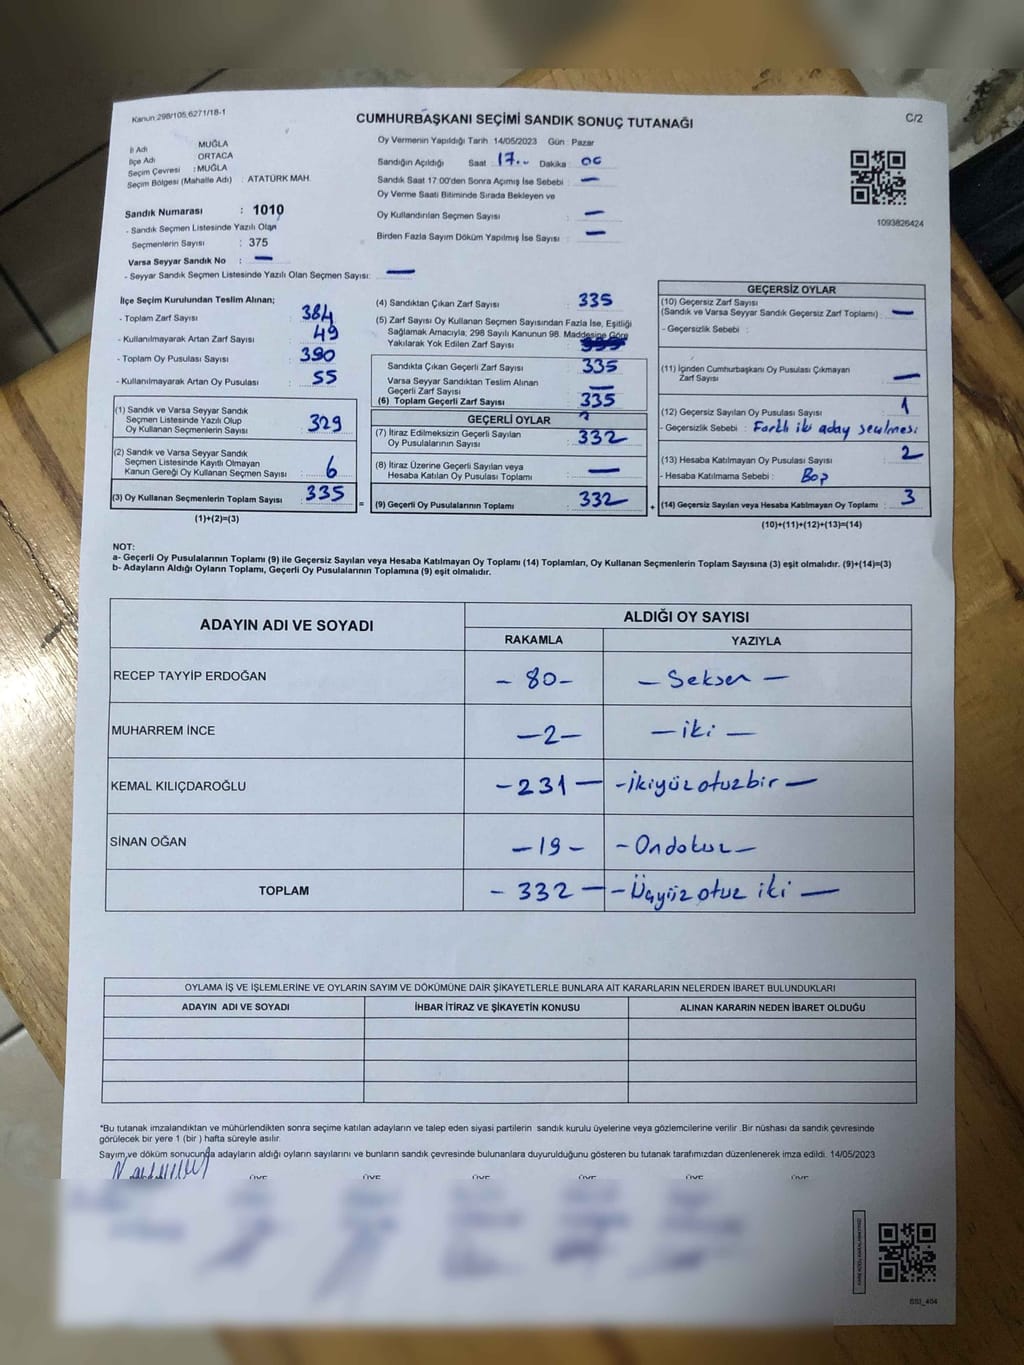 Kanun 298/105,6271/18-1
CUMHURBAŞKANI SEÇİMİ SANDIK SONUÇ TUTANAĞI
C/2
İl Adı MUĞLA
İlçe Adı ORTACA
Seçim Çevresi : MUĞLA
Seçim Bölgesi (Mahalle Adı) : ATATÜRK MAH.
Sandık Numarası : 1010
- Sandık Seçmen Listesinde Yazılı Olan
Seçmenlerin Sayısı : 375
Varsa Seyyar Sandık No : —
- Seyyar Sandık Seçmen Listesinde Yazılı Olan Seçmen Sayısı: —
Oy Vermenin Yapıldığı Tarih 14/05/2023 Gün : Pazar
Sandığın Açıldığı Saat 17.. Dakika 00
Sandık Saat 17:00'den Sonra Açımış İse Sebebi : —
Oy Verme Saati Bitiminde Sırada Bekleyen ve
Oy Kullandırılan Seçmen Sayısı : —
Birden Fazla Sayım Döküm Yapılmış İse Sayısı : —
1093826424
İlçe Seçim Kurulundan Teslim Alınan;
- Toplam Zarf Sayısı : 384
- Kullanılmayarak Artan Zarf Sayısı : 49
- Toplam Oy Pusulası Sayısı : 390
- Kullanılmayarak Artan Oy Pusulası : 55
(1) Sandık ve Varsa Seyyar Sandık
Seçmen Listesinde Yazılı Olup
Oy Kullanan Seçmenlerin Sayısı : 329
(2) Sandık ve Varsa Seyyar Sandık
Seçmen Listesinde Kayıtlı Olmayan
Kanun Gereği Oy Kullanan Seçmen Sayısı : 6
(3) Oy Kullanan Seçmenlerin Toplam Sayısı : 335
(1)+(2)=(3)
(4) Sandıktan Çıkan Zarf Sayısı : 335
(5) Zarf Sayısı Oy Kullanan Seçmen Sayısından Fazla İse, Eşitliği
Sağlamak Amacıyla; 298 Sayılı Kanunun 98. Maddesine Göre
Yakılarak Yok Edilen Zarf Sayısı :
Sandıkta Çıkan Geçerli Zarf Sayısı : 335
Varsa Seyyar Sandıktan Teslim Alınan
Geçerli Zarf Sayısı : —
(6) Toplam Geçerli Zarf Sayısı : 335
=
GEÇERLİ OYLAR
(7) İtiraz Edilmeksizin Geçerli Sayılan
Oy Pusulalarının Sayısı : 332
(8) İtiraz Üzerine Geçerli Sayılan veya
Hesaba Katılan Oy Pusulası Toplamı : —
(9) Geçerli Oy Pusulalarının Toplamı : 332
+
GEÇERSİZ OYLAR
(10) Geçersiz Zarf Sayısı
(Sandık ve Varsa Seyyar Sandık Geçersiz Zarf Toplamı) : —
- Geçersizlik Sebebi :
(11) İçinden Cumhurbaşkanı Oy Pusulası Çıkmayan
Zarf Sayısı : —
(12) Geçersiz Sayılan Oy Pusulası Sayısı : 1
- Geçersizlik Sebebi : Farklı iki aday seçilmesi
(13) Hesaba Katılmayan Oy Pusulası Sayısı : 2
- Hesaba Katılmama Sebebi : Boş
(14) Geçersiz Sayılan veya Hesaba Katılmayan Oy Toplamı : 3
(10)+(11)+(12)+(13)=(14)
NOT:
a- Geçerli Oy Pusulalarının Toplamı (9) ile Geçersiz Sayılan veya Hesaba Katılmayan Oy Toplamı (14) Toplamları, Oy Kullanan Seçmenlerin Toplam Sayısına (3) eşit olmalıdır. (9)+(14)=(3)
b- Adayların Aldığı Oyların Toplamı, Geçerli Oy Pusulalarının Toplamına (9) eşit olmalıdır.
ADAYIN ADI VE SOYADI
ALDIĞI OY SAYISI
RAKAMLA YAZIYLA
RECEP TAYYİP ERDOĞAN - 80 - — Seksen —
MUHARREM İNCE — 2 — — iki —
KEMAL KILIÇDAROĞLU - 231 — - İkiyüzotuzbir —
SİNAN OĞAN — 19 - - Ondokuz —
TOPLAM - 332 — - Üçyüz otuz iki —
OYLAMA İŞ VE İŞLEMLERİNE VE OYLARIN SAYIM VE DÖKÜMÜNE DAİR ŞİKAYETLERLE BUNLARA AİT KARARLARIN NELERDEN İBARET BULUNDUKLARI
ADAYIN ADI VE SOYADI İHBAR İTİRAZ VE ŞİKAYETİN KONUSU ALINAN KARARIN NEDEN İBARET OLDUĞU
*Bu tutanak imzalandıktan ve mühürlendikten sonra seçime katılan adayların ve talep eden siyasi partilerin sandık kurulu üyelerine veya gözlemcilerine verilir .Bir nüshası da sandık çevresinde
görülecek bir yere 1 (bir ) hafta süreyle asılır.
Sayım ve döküm sonucunda adayların aldığı oyların sayılarını ve bunların sandık çevresinde bulunanlara duyurulduğunu gösteren bu tutanak tarafımızdan düzenlenerek imza edildi. 14/05/2023
ÜYE ÜYE ÜYE ÜYE ÜYE ÜYE